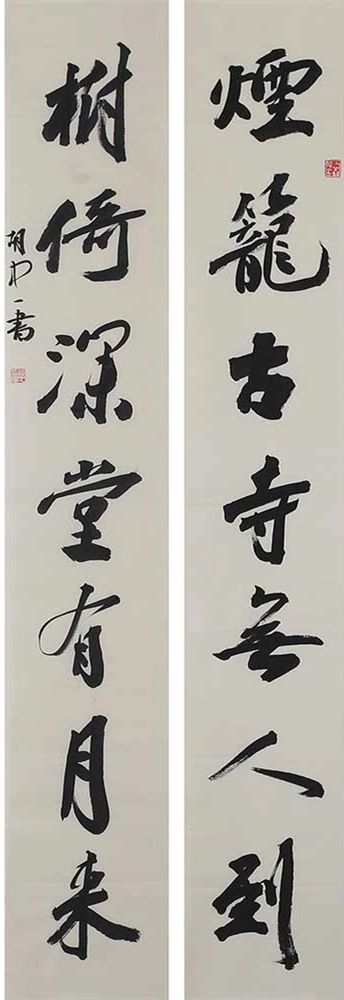 煙籠古寺無人到
樹倚深堂有月来
胡中一書